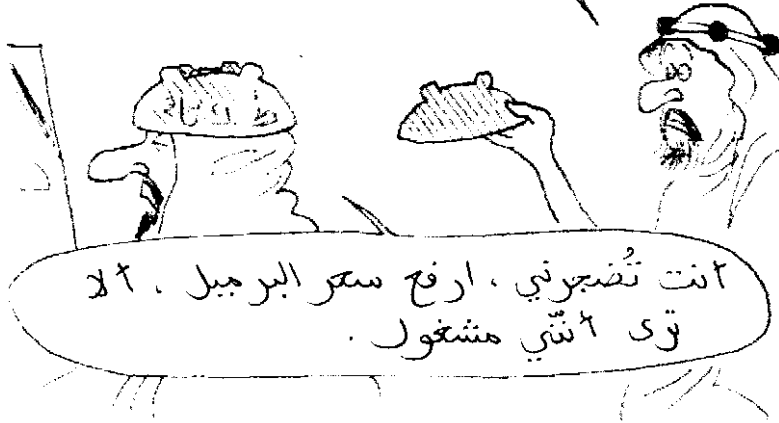 أنت تُضجرني ، ارفع سعر البرميل ، ألا
ترى أنّني مشغول .